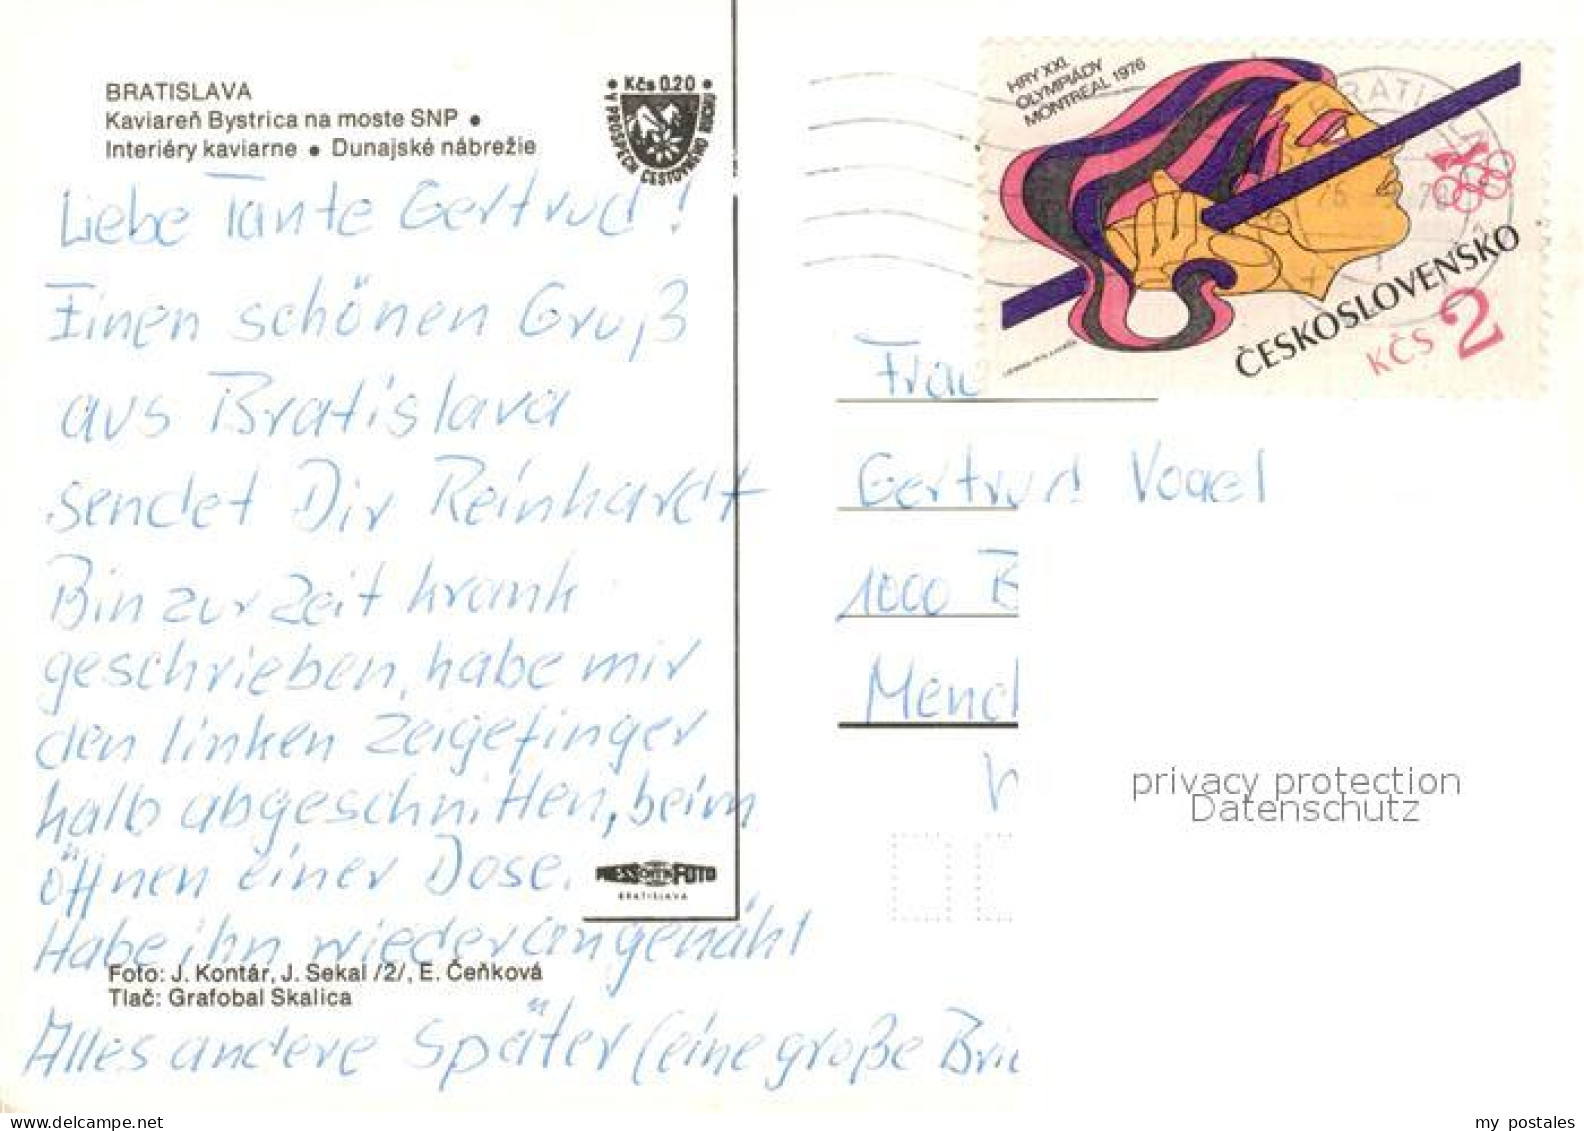 BRATISLAVA
Kaviareň Bystrica na moste SNP •
Interiéry kaviarne • Dunajské nábrežie
• Kčs 0.20 •
V PROSPECH CESTOVNÉHO RUCHU
Liebe Tante Gertrud!
Einen schönen Gruß
aus Bratislava
sendet Dir Reinhardt
Bin zur Zeit krank
geschrieben, habe mir
den linken Zeigefinger
halb abgeschnitten, beim
öffnen einer Dose.
Habe ihn wieder angenäht
Alles andere später (eine große
PRESSFOTO
BRATISLAVA
Foto: J. Kontár, J. Sekal /2/, E. Čeňková
Tlač: Grafobal Skalica
HRY XXI.
OLYMPIÁDY
MONTREAL 1976
ČESKOSLOVENSKO
KČS 2
Frau
Gertrud Vogel
1000 B
Mench
privacy protection
Datenschutz
my postales